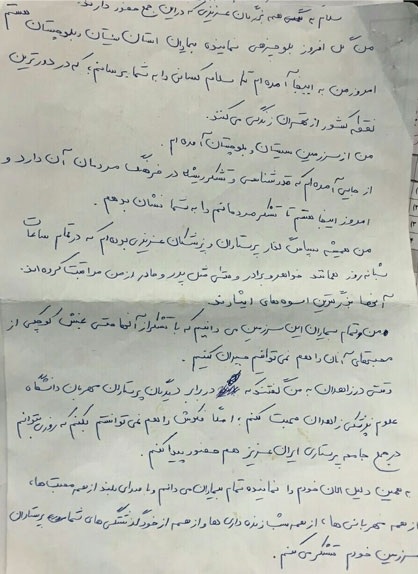 سلام به همه بزرگان عزیزی که در این جمع حضور دارند.
من گل افروز بلوچزهی نماینده بیماران استان سیستان و بلوچستان هستم
امروز من به اینجا آمده ام تا سلام کسانی را به شما برسانم، که در دورترین
نقطه کشور از تهران زندگی می کنند.
من از سرزمین سیستان و بلوچستان آمده ام.
از جایی آمده ام که قدرشناسی و تشکر ریشه در فرهنگ مردمان آن دارد و
امروز اینجا هستم تا تشکر مردمانم را به شما نشان بدهم.
من همیشه سپاس گذار پرستاران و پزشکان عزیزی بوده ام که در تمام ساعات
شبانه روز همانند خواهر و برادر و حتی مثل پدر و مادر از من مراقبت کرده اند.
آنها بزرگترین اسوه های ایثارند.
من و تمام بیماران این سرزمین می دانیم که با تشکر از آنها حتی بخش کوچکی از
محبتهای آنان را هم نمی توانیم جبران کنیم.
وقتی در زاهدان به من گفتند که در برابر دیدگان پرستاران مهربان دانشگاه
علوم پزشکی زاهدان صحبت کنم؛ اصلا فکرش را هم نمی توانستم بکنم که روزی بتوانم
در جمع جامعه پرستاری ایران عزیز هم حضور پیدا کنم.
به همین دلیل الان خودم را نماینده تمام بیماران می دانم و با صدای بلند از همه محبت ها،
از همه مهربانی ها، از همه شب زنده داری ها و از همه از خود گذشتگی های شما پرستاران
سرزمین خودم تشکر می کنم.